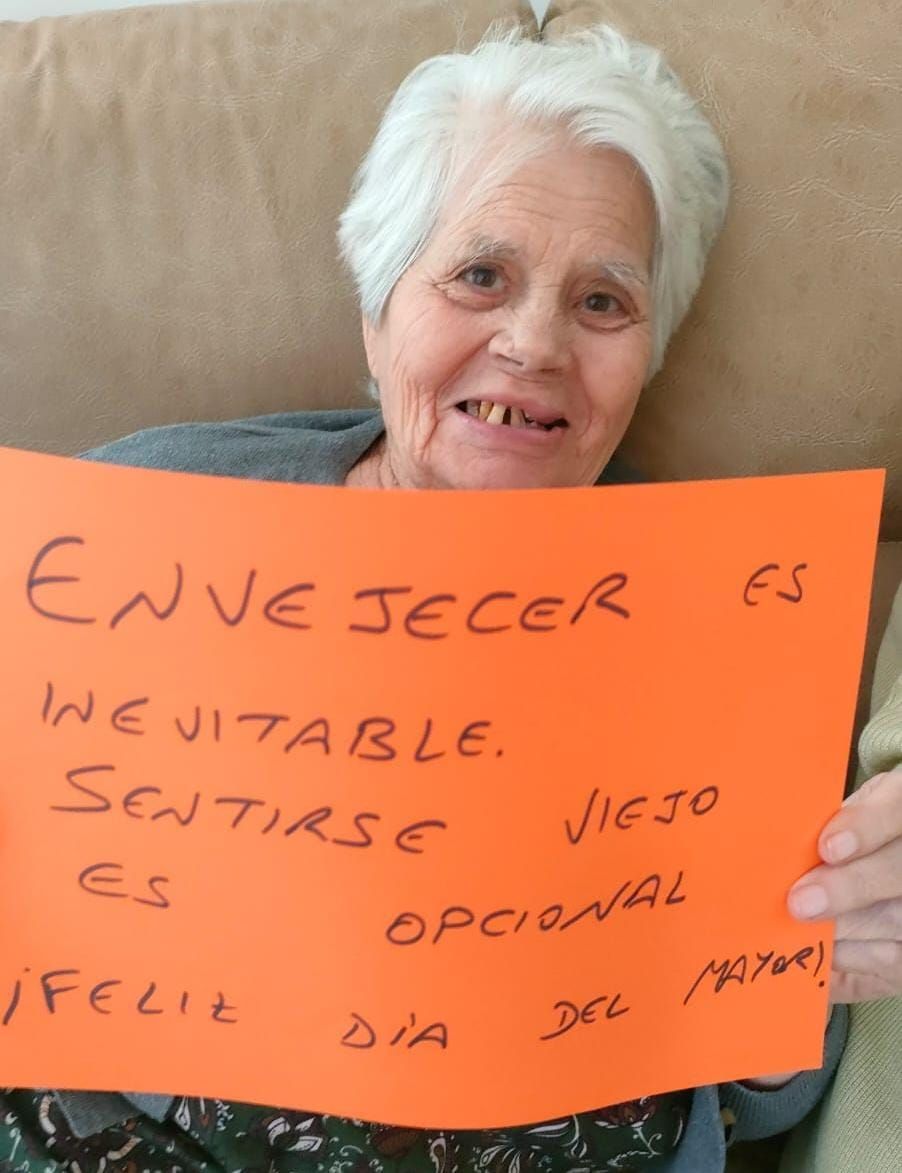 ENVEJECER ES
INEVITABLE.
SENTIRSE VIEJO
ES OPCIONAL
¡FELIZ DÍA DEL MAYOR!